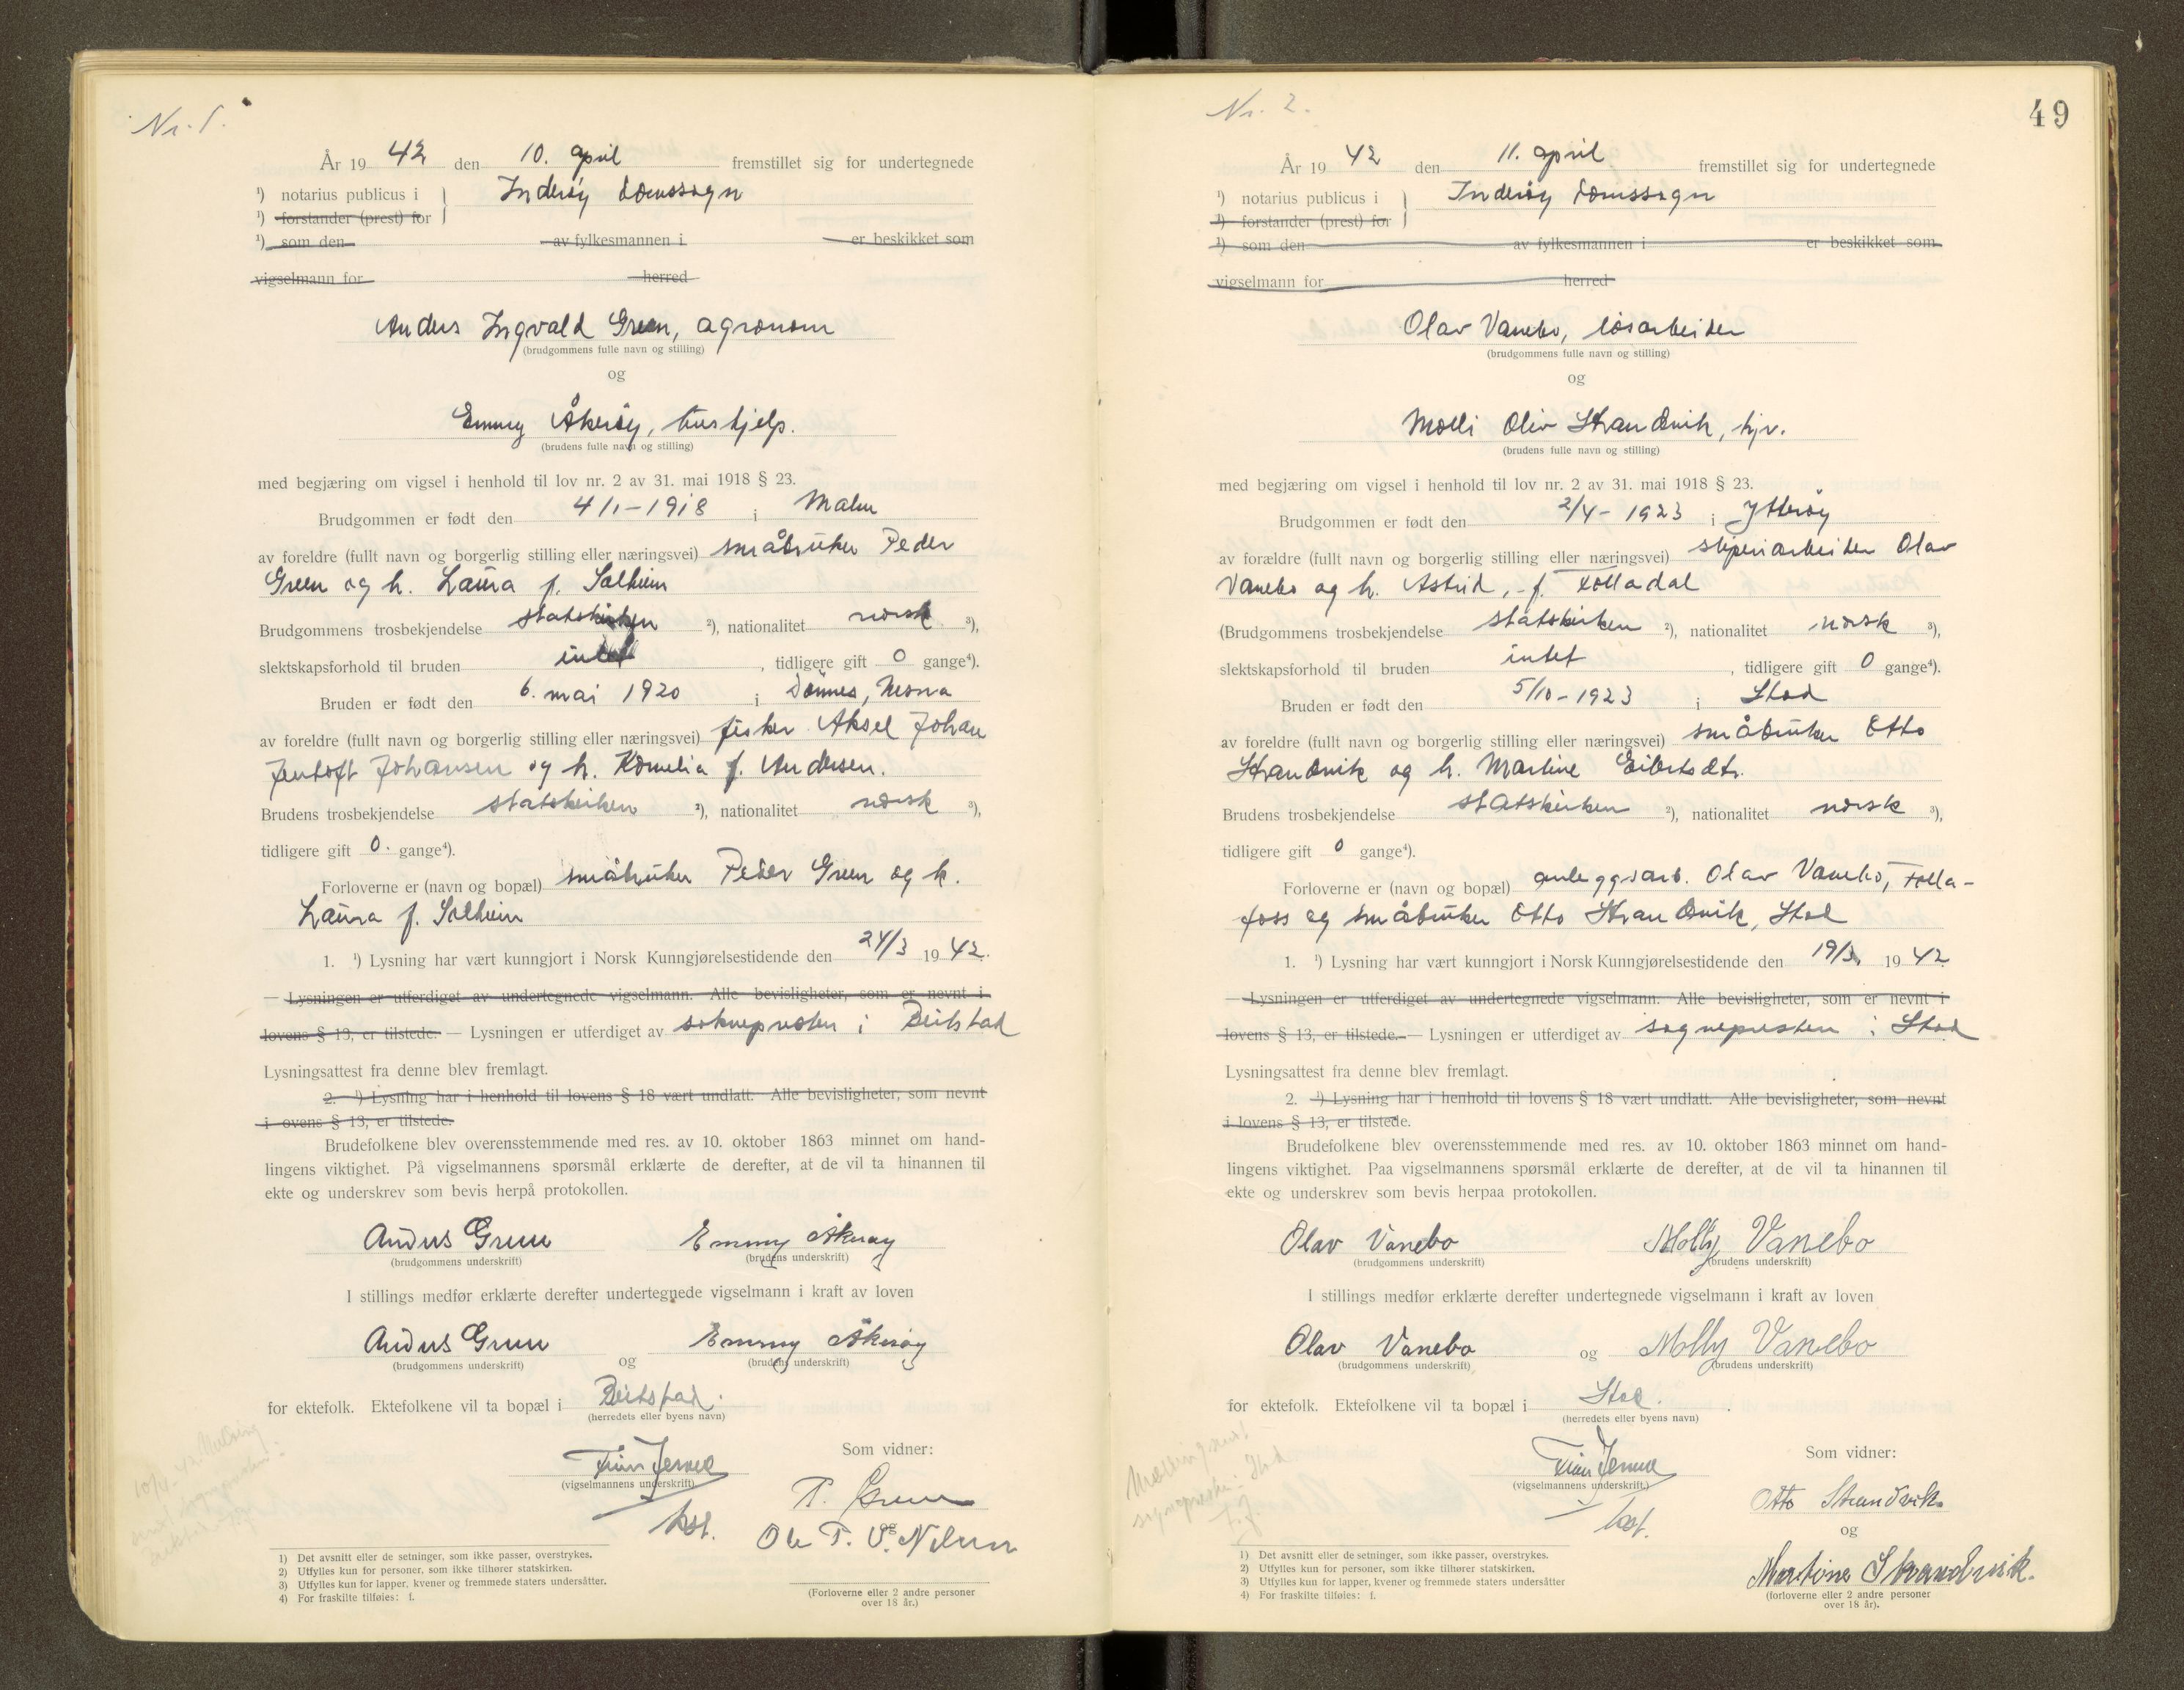 Nr. 1.
År 19 42 den 10. april fremstillet sig for undertegnede
¹) notarius publicus i Inderøy domssogn
¹) forstander (prest) for
¹) som den av fylkesmannen i er beskikket som
vigselmann for herred
Anders Ingvald Green, agronom
(brudgommens fulle navn og stilling)
og
Emmy Åkerøy, hushjelp.
(brudens fulle navn og stilling)
med begjæring om vigsel i henhold til lov nr. 2 av 31. mai 1918 § 23.
Brudgommen er født den 4/1-1918 i Malm
av foreldre (fullt navn og borgerlig stilling eller næringsvei) småbruker Peder
Green og h. Laura f. Solheim
Brudgommens trosbekjendelse statskirken ²), nationalitet norsk ³),
slektskapsforhold til bruden intet, tidligere gift 0 gange⁴).
Bruden er født den 6. mai 1920 i Dønnes, Nesna
av foreldre (fullt navn og borgerlig stilling eller næringsvei) fisker Aksel Johan
Jentoft Johansen og h. Kornelia f. Andersen.
Brudens trosbekjendelse statskirken ²), nationalitet norsk ³),
tidligere gift 0. gange⁴).
Forloverne er (navn og bopæl) småbruker Peder Green og h.
Laura f. Solheim
1. ¹) Lysning har vært kunngjort i Norsk Kunngjørelsestidende den 24/3 19 42.
— Lysningen er utferdiget av undertegnede vigselmann. Alle bevisligheter, som er nevnt i
lovens § 13, er tilstede. — Lysningen er utferdiget av soknepresten i Beitstad
Lysningsattest fra denne blev fremlagt.
2. ¹) Lysning har i henhold til lovens § 18 vært undlatt. Alle bevisligheter, som nevnt
i ovens § 13, er tilstede.
Brudefolkene blev overensstemmende med res. av 10. oktober 1863 minnet om hand-
lingens viktighet. På vigselmannens spørsmål erklærte de derefter, at de vil ta hinannen til
ekte og underskrev som bevis herpå protokollen.
Anders Green Emmy Åkerøy
(brudgommens underskrift) (brudens underskrift)
I stillings medfør erklærte derefter undertegnede vigselmann i kraft av loven
Anders Green og Emmy Åkerøy
(brudgommens underskrift) (brudens underskrift)
for ektefolk. Ektefolkene vil ta bopæl i Beitstad.
(herredets eller byens navn)
Som vidner:
Finn
(vigselmannens underskrift)
P. Green
og
Ole P. Nelson
1) Det avsnitt eller de setninger, som ikke passer, overstrykes.
2) Utfylles kun for personer, som ikke tilhører statskirken.
3) Utfylles kun for lapper, kvener og fremmede staters undersåtter.
4) For fraskilte tilføies: f.
(Forloverne eller 2 andre personer
over 18 år.)
Nr. 2.
49
År 19 42 den 11. april fremstillet sig for undertegnede
¹) notarius publicus i Inderøy domssogn
¹) forstander (prest) for
¹) som den av fylkesmannen i er beskikket som
vigselmann for herred
Olav Vanebo, løsarbeider
(brudgommens fulle navn og stilling)
og
Molli Oliv Strandvik, hjv.
(brudens fulle navn og stilling)
med begjæring om vigsel i henhold til lov nr. 2 av 31. mai 1918 § 23.
Brudgommen er født den 2/4-1923 i Ytterøy
av forældre (fullt navn og borgerlig stilling eller næringsvei) sliperiarbeider Olav
Vanebo og h. Astrid, f. Folladal
(Brudgommens trosbekjendelse statskirken ²), nationalitet norsk ³),
slektskapsforhold til bruden intet, tidligere gift 0 gange⁴).
Bruden er født den 5/10-1923 i Stod
av foreldre (fullt navn og borgerlig stilling eller næringsvei) småbruker Otto
Strandvik og h. Martine Eilertsdtr.
Brudens trosbekjendelse statskirken ²), nationalitet norsk ³),
tidligere gift 0 gange⁴).
Forloverne er (navn og bopæl) anleggsarb. Olav Vanebo, Folla-
foss og småbruker Otto Strandvik, Stod
1. ¹) Lysning har vært kunngjort i Norsk Kunngjørelsestidende den 19/3 19 42
— Lysningen er utferdiget av undertegnede vigselmann. Alle bevisligheter, som er nevnt i
lovens § 13, er tilstede. — Lysningen er utferdiget av sognepresten i Stod
Lysningsattest fra denne blev fremlagt.
2. ¹) Lysning har i henhold til lovens § 18 vært undlatt. Alle bevisligheter, som nevnt
i lovens § 13, er tilstede.
Brudefolkene blev overensstemmende med res. av 10. oktober 1863 minnet om hand-
lingens viktighet. Paa vigselmannens spørsmål erklærte de derefter, at de vil ta hinannen til
ekte og underskrev som bevis herpaa protokollen.
Olav Vanebo Molly Vanebo
(brudgommens underskrift) (brudens underskrift)
I stillings medfør erklærte derefter undertegnede vigselmann i kraft av loven
Olav Vanebo og Molly Vanebo
(brudgommens underskrift) (brudens underskrift)
for ektefolk. Ektefolkene vil ta bopæl i Stod.
(herredets eller byens navn)
Som vidner:
Finn
(vigselmannens underskrift)
Otto Strandvik
og
Martine Strandvik.
1) Det avsnitt eller de setninger, som ikke passer, overstrykes.
2) Utfylles kun for personer, som ikke tilhører statskirken.
3) Utfylles kun for lapper, kvener og fremmede staters undersåtter
4) For fraskilte tilføies: f.
(forloverne eller 2 andre personer
over 18 år).